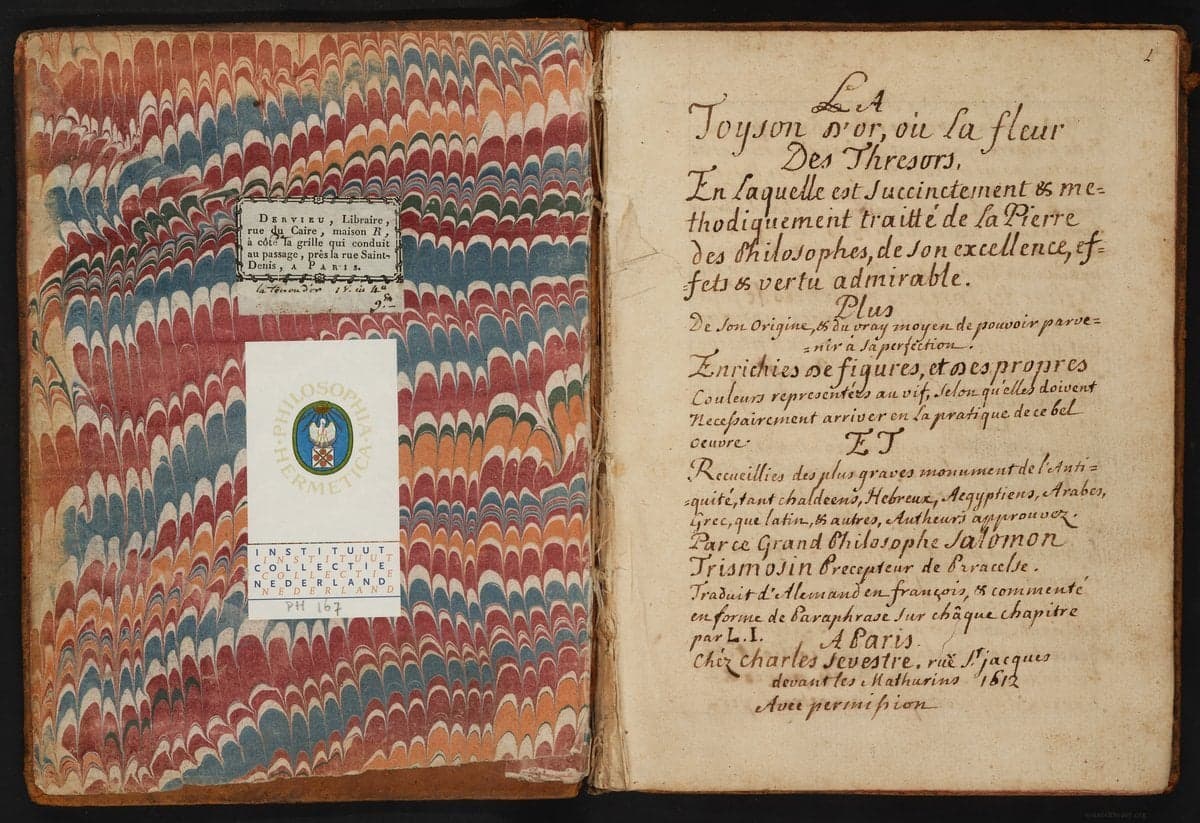 DERVIEU, Libraire,
rue du Caire, maison R,
à côté la grille qui conduit
au passage, près la rue Saint-
Denis, A PARIS.
la toison d'or 1 v. in 4°
9.
PHILOSOPHIA · HERMETICA ·
INSTITUUT
INSTITUUT
COLLECTIE
COLLECTIE
NEDERLAND
NEDERLAND
PH 167
1
LA
Toyson d'or, ou La fleur
Des Thresors,
En Laquelle est Succinctement & me=
thodiquement traitté de La Pierre
des Philosophes, de son excellence, ef=
=fets & vertu admirable.
Plus
De Son Origine, & du vray moyen de pouvoir parve=
=nir à Sa perfection.
Enrichies de figures, et des propres
Couleurs representées au vif, Selon qu'elles doivent
Necessairement arriver en La pratique de ce bel
oeuvre.
ET
Recueillies des plus graves monument de l'Anti=
=quité, tant chaldeens, Hebreux, Aegyptiens, Arabes,
Grec, que latin, & autres, Autheurs approuvez.
Par ce Grand Philosophe Salomon
Trismosin Precepteur de Paracelse.
Traduit d'Alemand en françois, & commenté
en forme de Paraphrase Sur châque chapitre
par L.I.
A Paris.
Chéz Charles Sevestre, rue St jacques
devant les Mathurins 1612
Avec permission